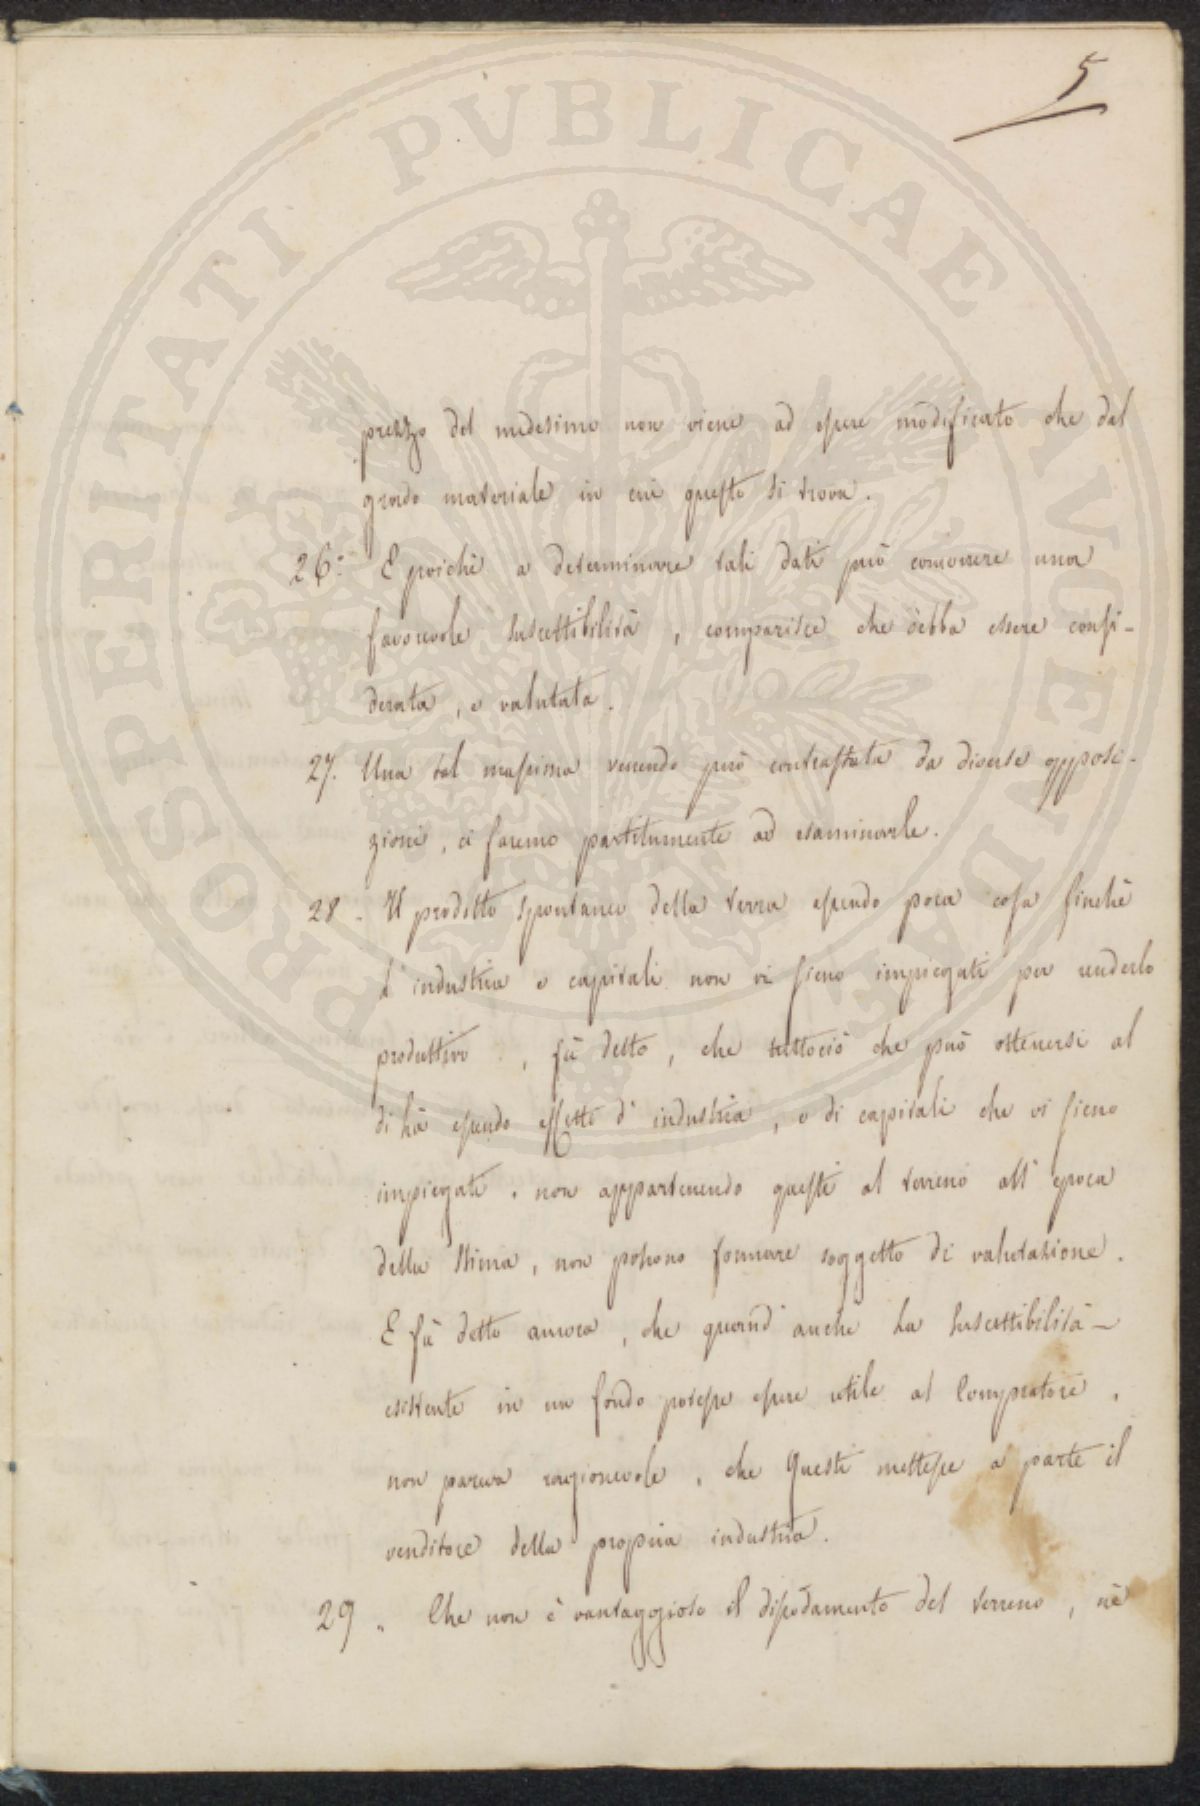 5
prezzo del medesimo non viene ad essere modificato che dal
grado materiale in cui questo si trova.
26.° E poichè a determinare tali dati può concorrere una
favorevole suscettibilità, comparisce che debba essere consi-
derata, e valutata.
27. Una tal massima venendo però contrastata da diverse opposi-
zioni, ci faremo partitamente ad esaminarle.
28. Il prodotto spontaneo della terra essendo poca cosa finchè
l'industria e capitali non vi sieno impiegati per renderlo
produttivo, fù detto, che tuttociò che può ottenersi al
di là essendo effetto d'industria, e di capitali che vi sieno
impiegati, non appartenendo questi al terreno all'epoca
della stima, non possono formare soggetto di valutazione.
E fù detto ancora, che quand'anche la suscettibilità
esistente in un fondo potesse essere utile al Compratore,
non pareva ragionevole, che Questi mettesse a parte il
venditore della propria industria.
29. Che non è vantaggioso il dissodamento del terreno, nè
PROSPERITATI PVBLICAE AVGENDAE